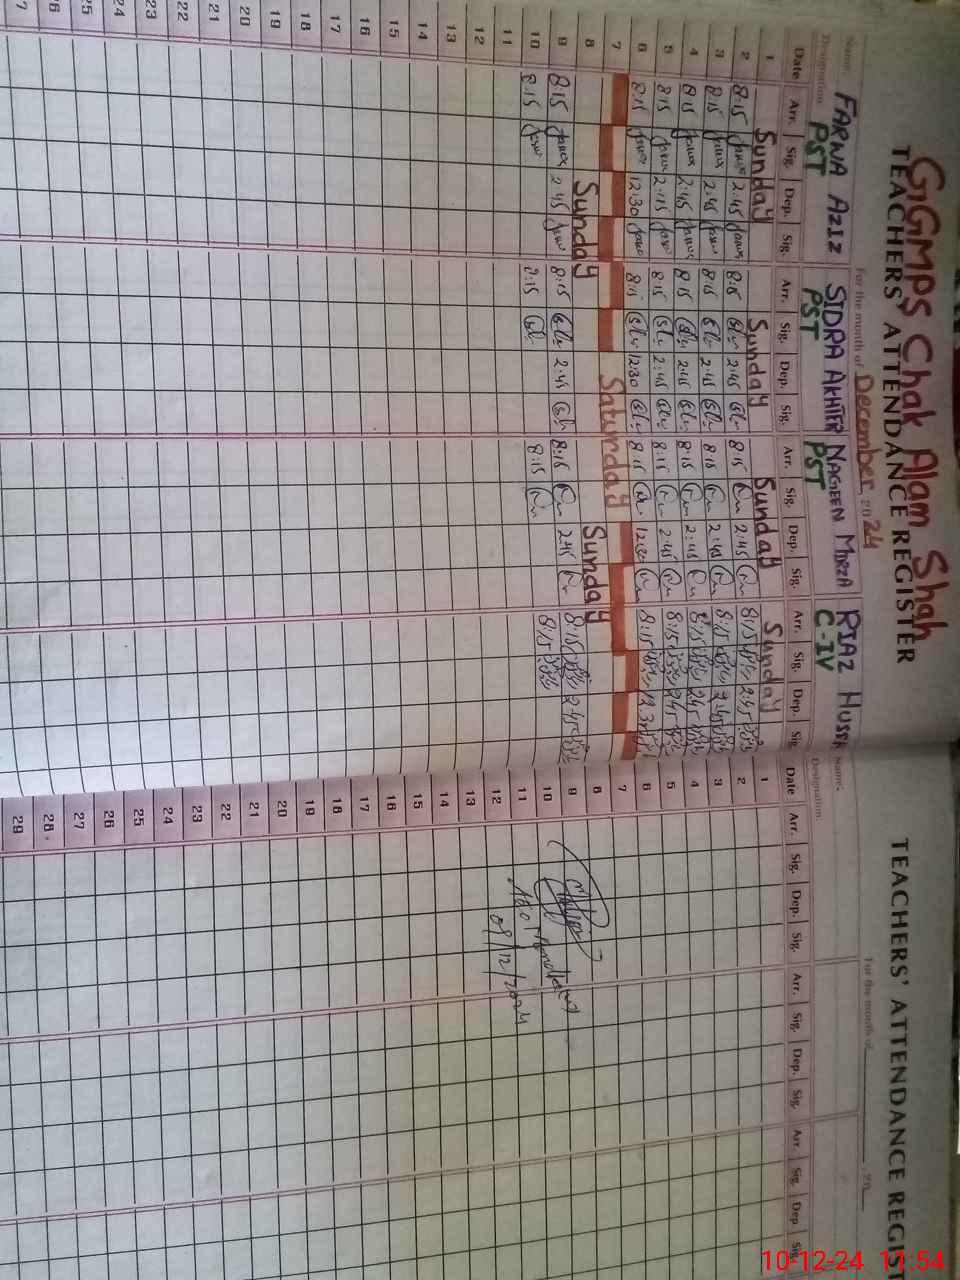 GGMPS Chak Alam Shah
TEACHERS' ATTENDANCE REGISTER
For the month of December 2024
Name: FARWA AZIZ SIDRA AKHTER NAGEEN MIRZA RIAZ HUSSA
Designation PST PST PST C-IV
Date Arr. Sig. Dep. Sig. Arr. Sig. Dep. Sig. Arr. Sig. Dep. Sig. Arr. Sig. Dep. Sig.
1 Sunday Sunday Sunday Sunday
2 8:15 2:45 8:15 2:45 8:15 2:45 8:15 2:45
3 8:15 2:45 8:15 2:45 8:15 2:45 8:15 2:45
4 8:15 2:45 8:15 2:45 8:15 2:45 8:15 2:45
5 8:15 2:15 8:15 2:45 8:15 2:45 8:15 2:45
6 8:15 12:30 8:15 12:30 8:15 12:30 8:15 12:30
7 Saturday
8 Sunday Sunday
9 8:15 2:45 8:15 2:45 8:15 2:45 8:15 2:45
10 8:15 8:15 8:15 8:15
11
12
13
14
15
16
17
18
19
20
21
22
23
24
25
26
27
TEACHERS' ATTENDANCE REGIST
For the month of 20
Name:
Designation:
Date Arr. Sig. Dep. Sig. Arr. Sig. Dep. Sig. Arr. Sig. Dep Sig.
1
2
3
4
5
6
7
8
9
10
11
12
13
14
15
16
17
18
19
20
21
22
23
24
25
26
27
28
29
09/12/2024
10-12-24 11:54